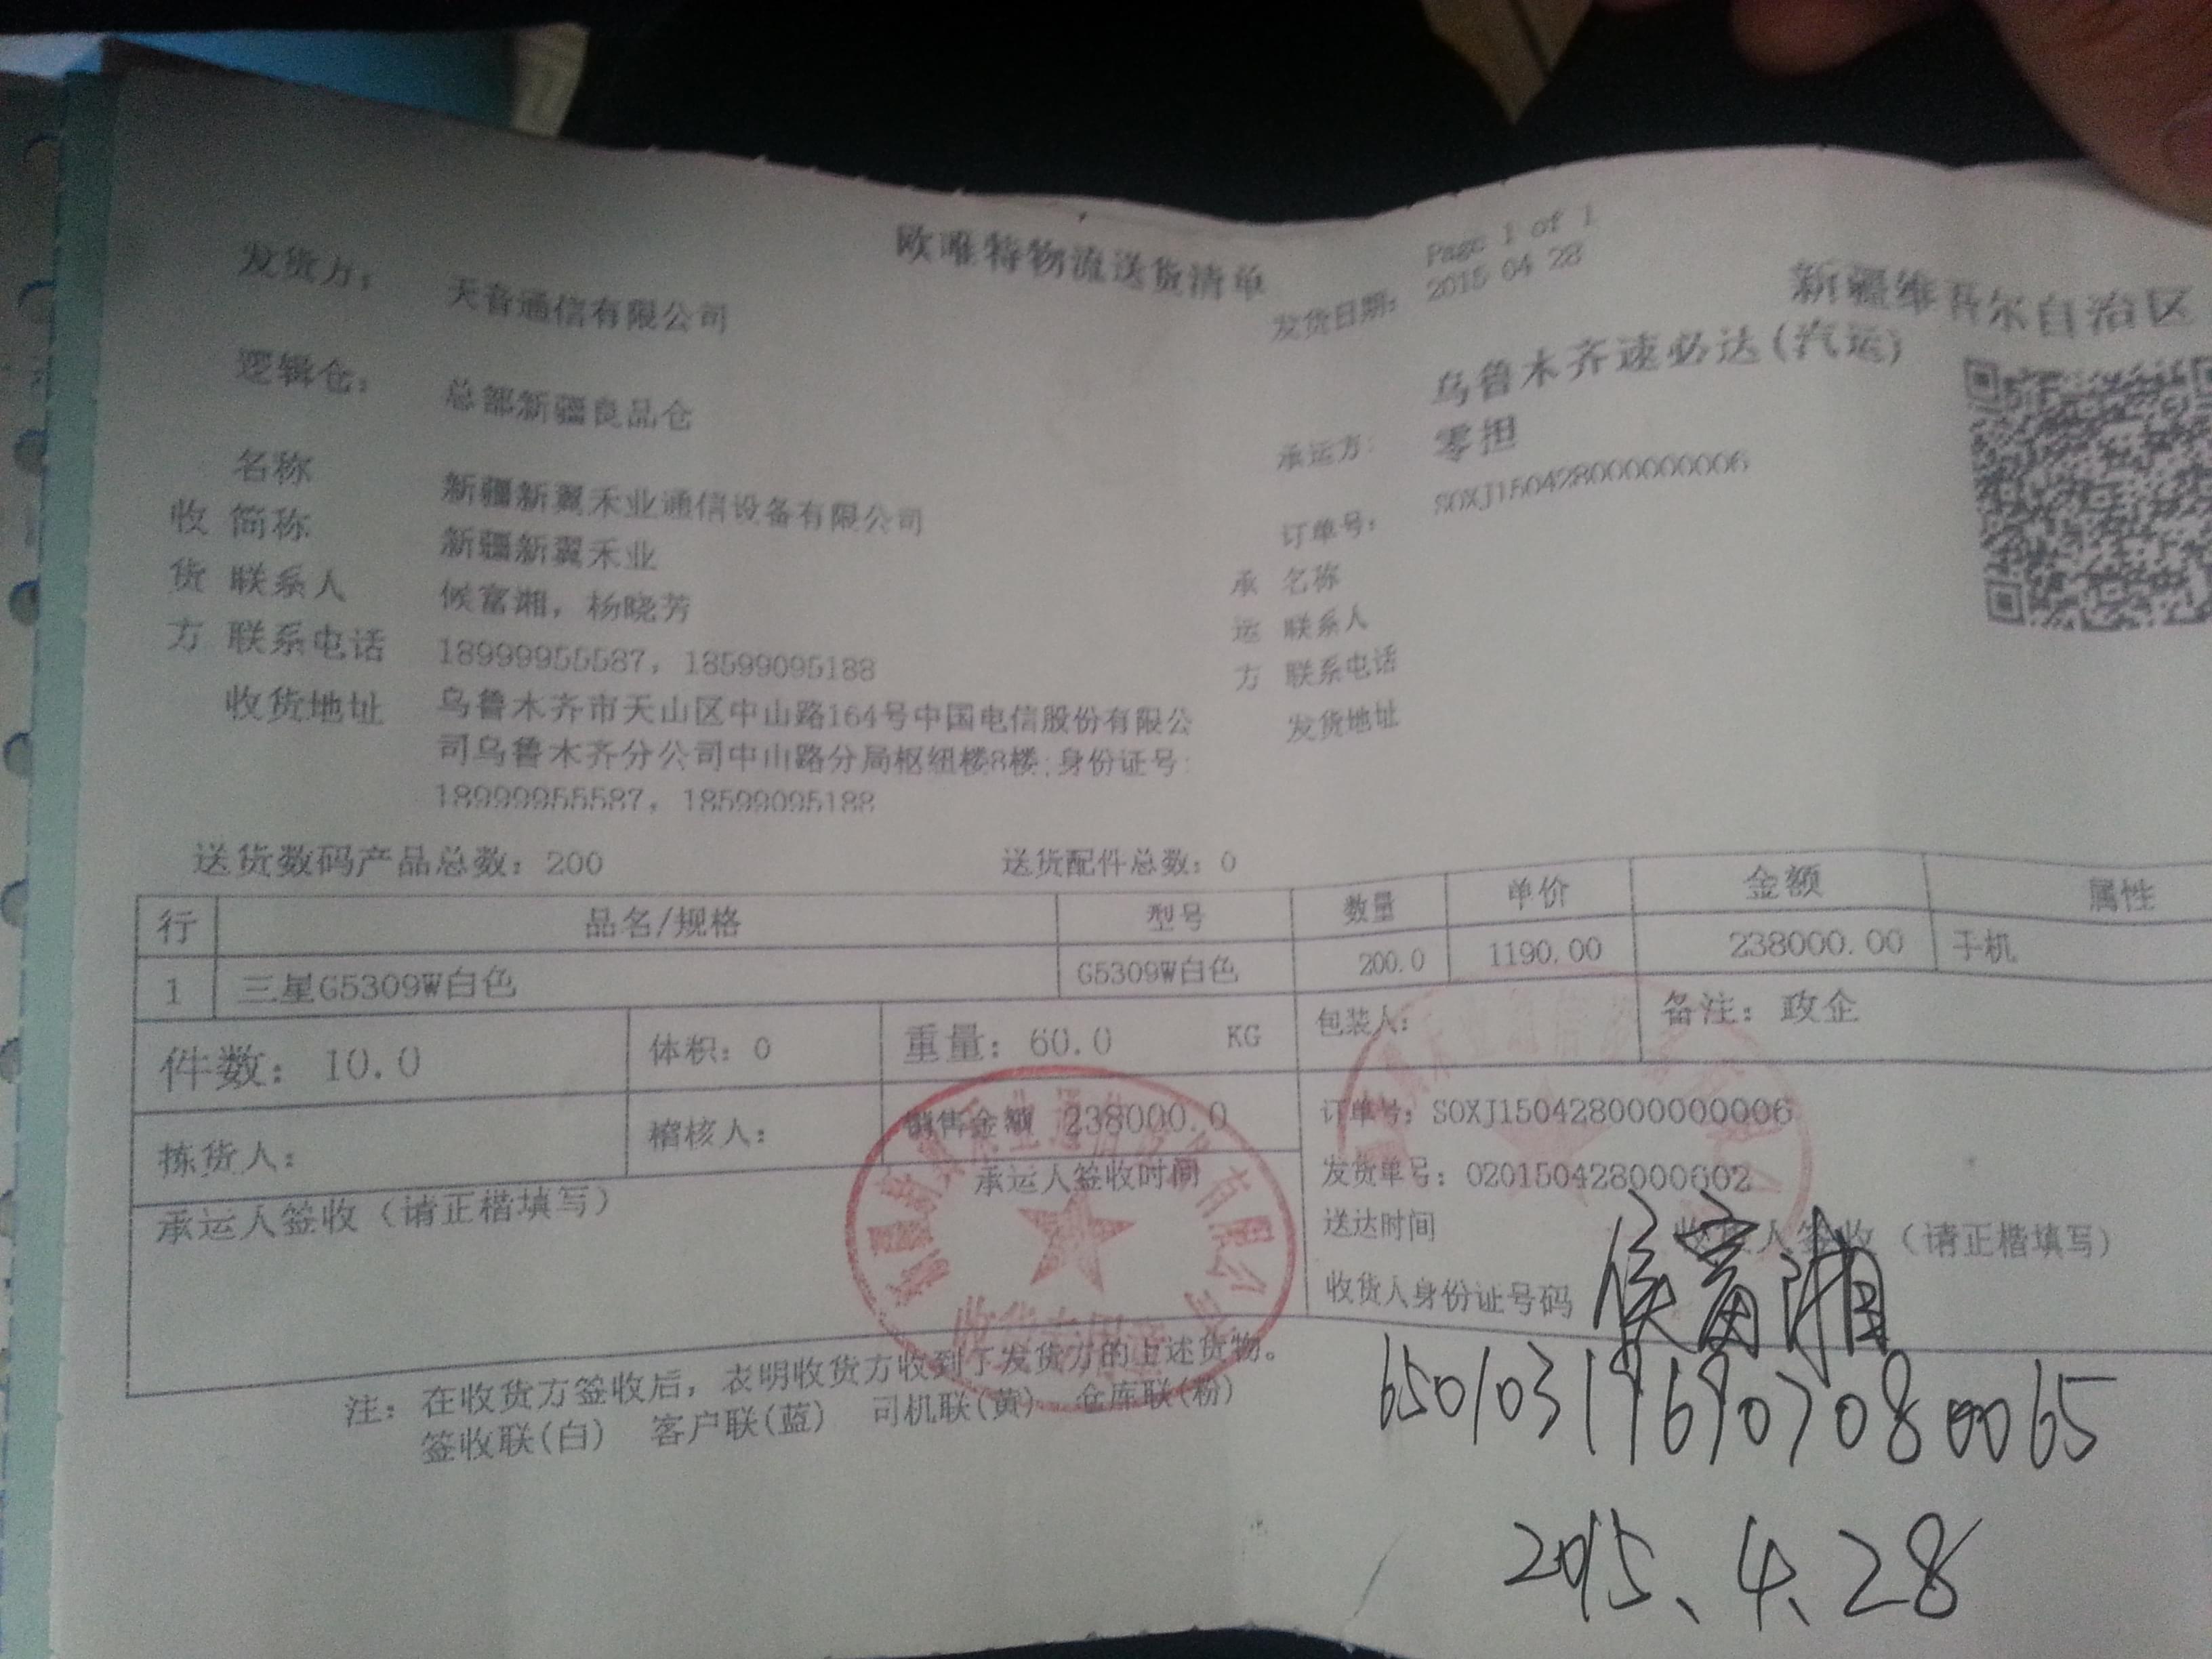 欧唯特物流送货清单
Page 1 of 1
发货方： 天音通信有限公司
发货日期： 2015 04 28
新疆维吾尔自治区
逻辑仓： 总部新疆良品仓
乌鲁木齐速必达(汽运)
承运方： 零担
名称 新疆新翼禾业通信设备有限公司
订单号： SOXJ150428000000006
收 简称 新疆新翼禾业
承 名称
货 联系人 候富湘，杨晓芳
运 联系人
方 联系电话 18999955587，18599095188
方 联系电话
收货地址 乌鲁木齐市天山区中山路164号中国电信股份有限公
发货地址
司乌鲁木齐分公司中山路分局枢纽楼8楼;身份证号:
18999955587，18599095188
送货数码产品总数：200 送货配件总数：0
行 品名/规格 型号 数量 单价 金额 属性
1 三星G5309W白色 G5309W白色 200.0 1190.00 238000.00 手机
件数：10.0 体积：0 重量：60.0 KG 包装人： 备注：政企
拣货人： 稽核人： 销售金额 238000.0 订单号：SOXJ150428000000006
承运人签收（请正楷填写） 承运人签收时间 发货单号：020150428000602
送达时间 收货人签收（请正楷填写）
收货人身份证号码 侯富湘
650103196907080065
2015、4、28
注：在收货方签收后，表明收货方收到了发货方的上述货物。
签收联(白) 客户联(蓝) 司机联(黄) 仓库联(粉)